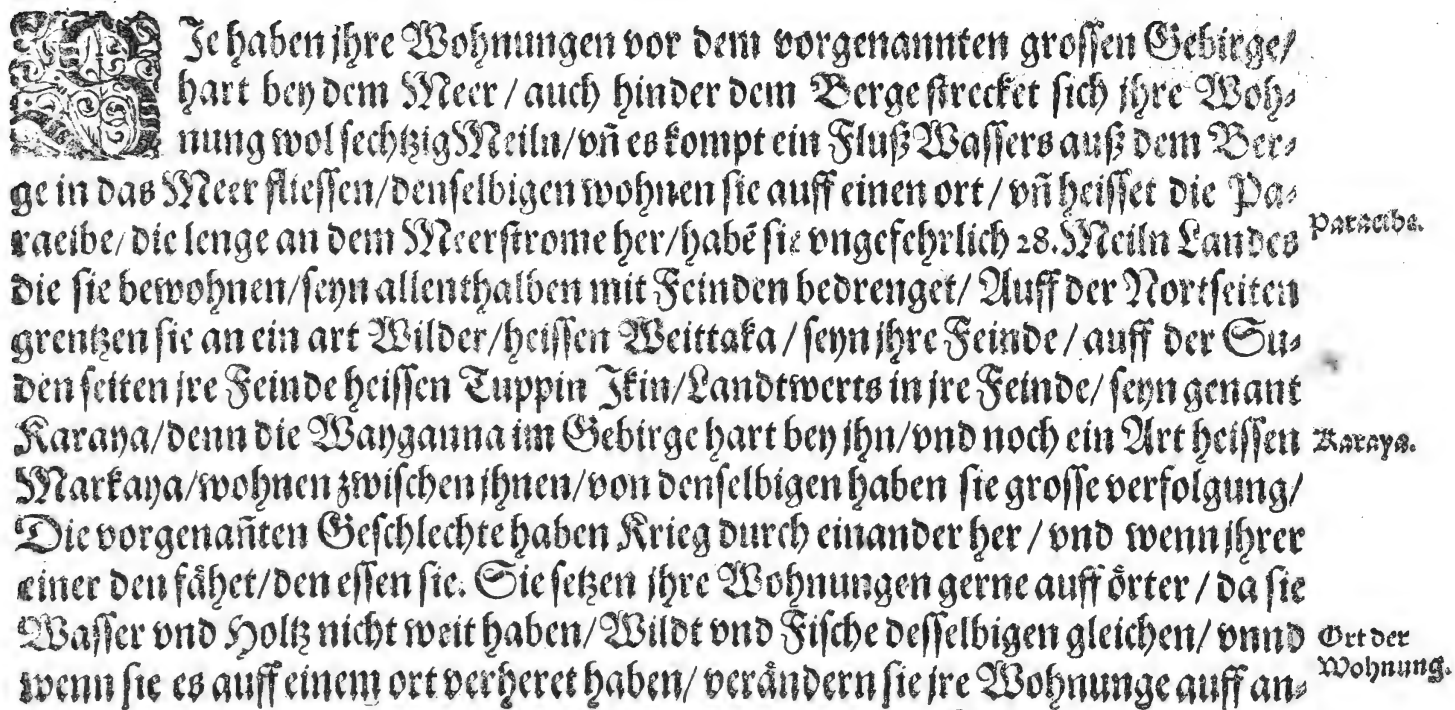 SJe haben jhre Wohnungen vor dem vorgenannten grossen Gebirge/
hart bey dem Meer / auch hinder dem Berge strecket sich jhre Woh⸗
nung wol sechtzig Meiln/ vñ es kompt ein Fluß Wassers auß dem Ber⸗
ge in das Meer fliessen/ denselbigen wohnen sie auff einen ort / vñ heisset die Pa⸗
raeibe/ die lenge an dem Meerstrome her/ habẽ sie vngefehrlich 28. Meiln Landes
Paraeibe.
die sie bewohnen/ seyn allenthalben mit Feinden bedrenget/ Auff der Nortseiten
grentzen sie an ein art Wilder/ heissen Weittaka / seyn jhre Feinde / auff der Su⸗
den seiten jre Feinde heissen Tuppin Jkin/ Landtwerts in jre Feinde/ seyn genant
Karaya/ denn die Wayganna im Gebirge hart bey jhn/ vnd noch ein Art heissen
Karaya.
Markaya/ wohnen zwischen jhnen/ von denselbigen haben sie grosse verfolgung/
Die vorgenañten Geschlechte haben Krieg durch einander her / vnd wenn jhrer
einer den fähet/ den essen sie. Sie setzen jhre Wohnungen gerne auff örter / da sie
Wasser vnd Holtz nicht weit haben/ Wildt vnd Fische desselbigen gleichen/ vnnd
Ort der
Wohnung.
wenn sie es auff einem ort verheret haben/ verändern sie jre Wohnunge auff an⸗